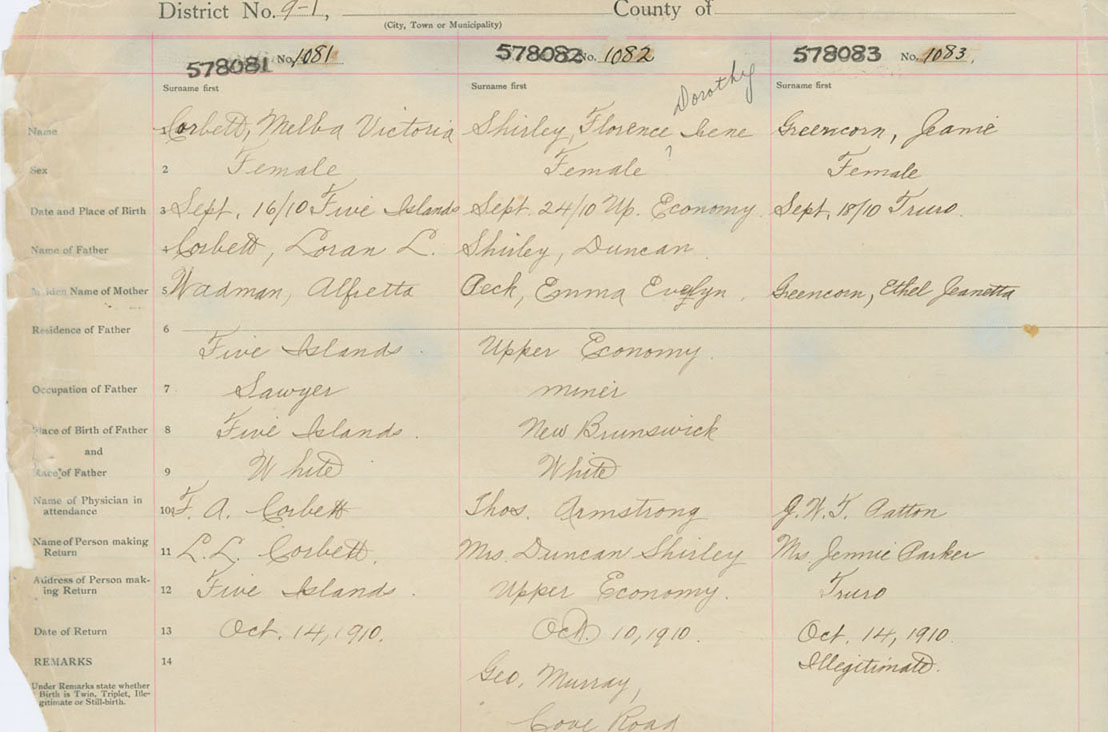 District No. 9-1, County of
(City, Town or Municipality)
578081 No. 1081 578082 No. 1082 578083 No. 1083.
Surname first Surname first Surname first
Dorothy
Name 1 Corbett, Melba Victoria Shirley, Florence Irene Greencorn, Jeanie
?
Sex 2 Female Female Female
Date and Place of Birth 3 Sept. 16/10 Five Islands Sept. 24/10 Up. Economy. Sept. 18/10 Truro.
Name of Father 4 Corbett, Loran L. Shirley, Duncan
Maiden Name of Mother 5 Wadman, Alfretta Peck, Emma Evelyn. Greencorn, Ethel Jeanetta
Residence of Father 6 Five Islands Upper Economy.
Occupation of Father 7 Sawyer miner
Place of Birth of Father 8 Five Islands. New Brunswick
and
Race of Father 9 White White
Name of Physician in
attendance 10 F. A. Corbett Thos. Armstrong G. W. T. Patton
Name of Person making
Return 11 L. L. Corbett. Mrs. Duncan Shirley Mrs Jennie Parker
Address of Person mak-
ing Return 12 Five Islands. Upper Economy. Truro
Date of Return 13 Oct. 14, 1910. Oct. 10, 1910. Oct. 14, 1910.
REMARKS 14 Geo. Murray, Illegitimate.
Under Remarks state whether
Birth is Twin, Triplet, Ille-
gitimate or Still-birth.
Cove Road